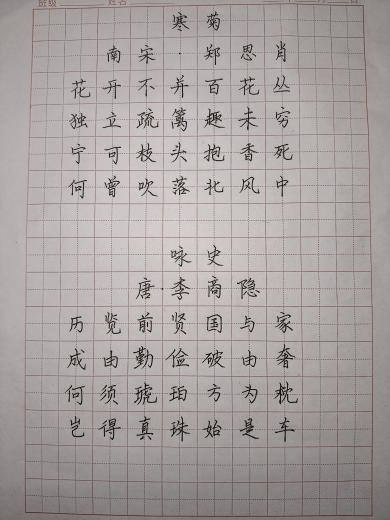 班级 姓名
寒菊
南宋·郑思肖
花开不并百花丛
独立疏篱趣未穷
宁可枝头抱香死
何曾吹落北风中
咏史
唐·李商隐
历览前贤国与家
成由勤俭破由奢
何须琥珀方为枕
岂得真珠始是车